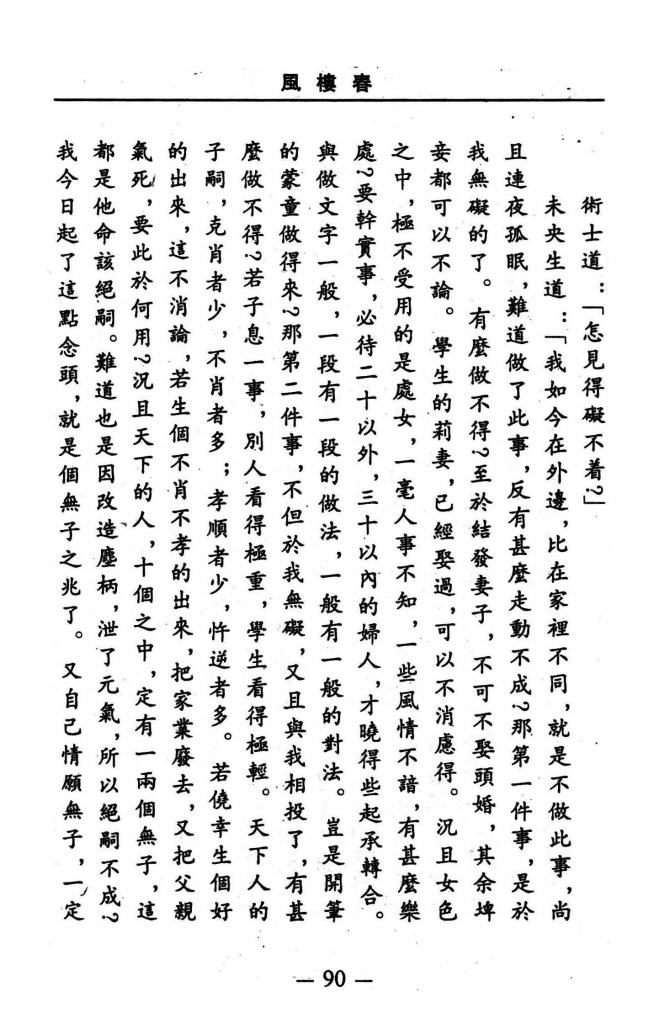 風樓春
術士道：「怎見得礙不着？」
未央生道：「我如今在外邊，比在家裡不同，就是不做此事，尚
且連夜孤眠，難道做了此事，反有甚麼走動不成？那第一件事，是於
我無礙的了。有麼做不得？至於結發妻子，不可不娶頭婚，其余埤
妾都可以不論。學生的莉妻，已經娶過，可以不消慮得。況且女色
之中，極不受用的是處女，一毫人事不知，一些風情不諳，有甚麼樂
處？要幹實事，必待二十以外，三十以內的婦人，才曉得些起承轉合。
與做文字一般，一段有一段的做法，一般有一般的對法。豈是開筆
的蒙童做得來？那第二件事，不但於我無礙，又且與我相投了，有甚
麼做不得？若子息一事，別人看得極重，學生看得極輕。天下人的
子嗣，克肖者少，不肖者多；孝順者少，忤逆者多。若僥幸生個好
的出來，這不消論，若生個不肖不孝的出來，把家業廢去，又把父親
氣死，要此於何用？況且天下的人，十個之中，定有一兩個無子，這
都是他命該絕嗣。難道也是因改造塵柄，泄了元氣，所以絕嗣不成？
我今日起了這點念頭，就是個無子之兆了。又自己情願無子，一定
— 90 —